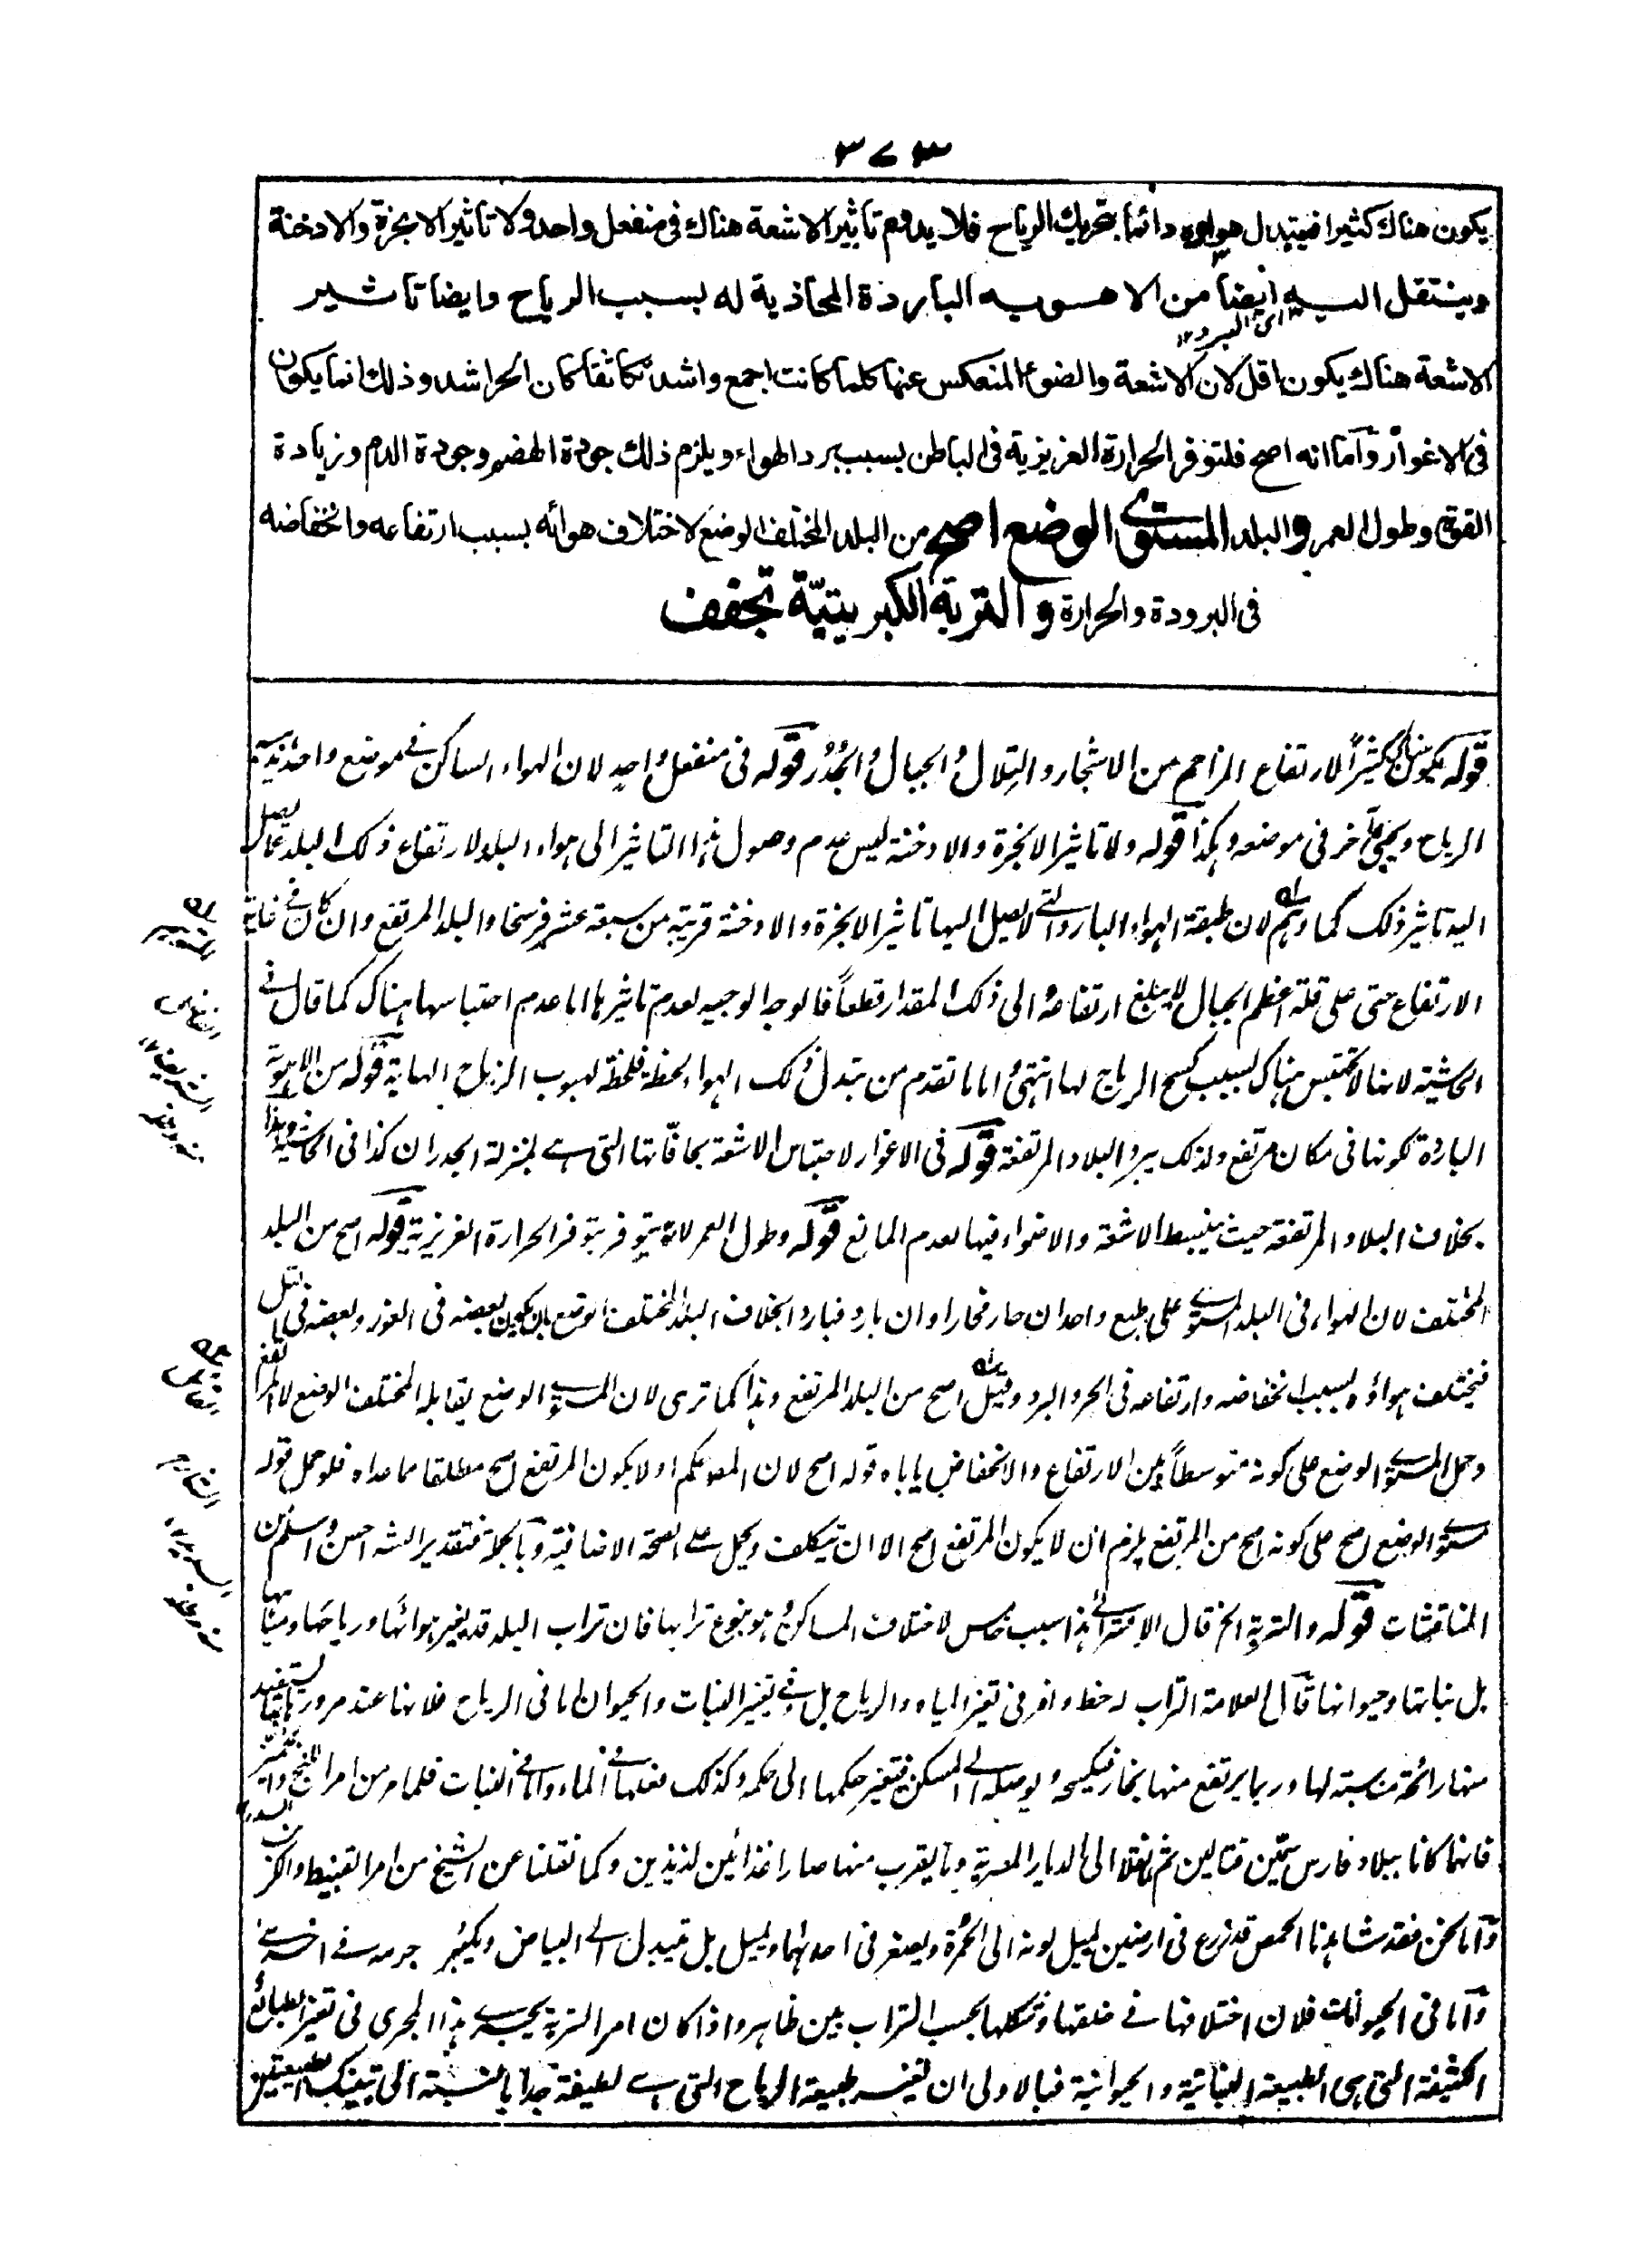 ٣٧٣
يكون هناك كثيرا فيتبدل هواؤه دائما بتحريك الرياح فلا يدوم تأثير الاشعة هناك فى منفعل واحد ولا تاثير الابخرة والادخنة
وينتقل اليه ايضا من الاهوية الباردة المحاذية له بسبب الرياح وايضا تاثير
الاشعة هناك يكون اقل لان الاشعة والضوء المنعكس عنها كلما كانت اجمع واشد تكاثفا كان الحر اشد وذلك انما يكون
فى الاغوار وآما انه اصح فلتوفر الحرارة الغريزية فى الباطن بسبب برد الهواء ويلزم ذلك جودة الهضم وجودة الدم وزيادة
القوى وطول العمر والبلد المستوى الوضع اصح من البلد المختلف الوضع لاختلاف هوائه بسبب ارتفاعه وانخفاضه
فى البرودة والحرارة والتربة الكبريتيّة تجفف
قوله يكون هناك كثيراً لارتفاع المزاحم من الاشجار والتلال والجبال والجُدُر قوله فى منفعل واحدٍ لان الهواء الساكن فى موضع واحد
الرياح ويجئ آخر فى موضعه وهكذا قوله ولا تاثير الابخرة والادخنة ليس عدم وصول هذا التاثير الى هواء البلد لارتفاع ذلك البلد عما يصل
اليه تاثير ذلك كما وهم لان طبقة الهواء البارد التى لا يصل اليها تاثير الابخرة والادخنة قريبة من سبعة عشر فرسخا والبلد المرتفع وان كان فى غاية
الارتفاع حتى على قلة اعظم الجبال لا يبلغ ارتفاعه الى ذلك المقدار قطعاً فالوجه الوجيه لعدم تاثيرها اما عدم احتباسها هناك كما قال فى
الحاشية لانها لا تحتبس هناك بسبب كسح الرياح لها انتهى واما ما تقدم من تبدل ذلك الهواء لحظة فلحظة لهبوب الرياح الهابة قوله من الاهوية
الباردة لكونها فى مكان مرتفع ولذلك يبرد البلاد المرتفعة قوله فى الاغوار لاحتباس الاشعة بحافاتها التى هى بمنزلة الجدران كذا فى الحاشية وهذا
بخلاف البلاد المرتفعة حيث ينبسط الاشعة والاضواء فيها لعدم المانع قوله وطول العمر لانه يتوفر بتوفر الحرارة الغريزية قوله اصح من البلد
المختلف لان الهواء فى البلد المستوى على طبع واحد ان حار فحارا وان بارد فباردا بخلاف البلد المختلف الوضع بان يكون بعضه فى الغور وبعضه فى التل
فيختلف هواؤه بسبب انخفاضه وارتفاعه فى الحر والبرد وقيل اصح من البلد المرتفع وهذا كما ترى لان المستوى الوضع يقابله المختلف الوضع لا المرتفع
وحمل المستوى الوضع على كونه متوسطاً بين الارتفاع والانخفاض ياباه قوله اصح لان المصنف حكم اولا بكون المرتفع اصح مطلقا مما عداه فلو حمل قوله
مستوى الوضع اصح على كونه اصح من المرتفع يلزم ان لا يكون المرتفع اصح الا ان يتكلف ويحمل على الصحة الاضافية وبالجملة فتقدير الشارح احسن واسلم من
المناقشات قوله والتربة الخ قال الاقسرائى هذا سبب خامس لاختلاف المساكن وهو نوع ترابها فان تراب البلد قد يغير هوائها ورياحها ومياهها
بل نباتها وحيوانها قال العلامة التراب له حظ وافر فى تغير المياه والرياح بل وفى تغيير النبات والحيوان اما فى الرياح فلانها عند مرورها بها تستفيد
منها رائحة مناسبة لها وربما يرتفع منها بخار فيكسحه ويوصله الى المسكن فيتغير حكمها الى حكمه وكذلك فعلها فى الماء واما فى النبات فلما مر من امر البنج واللبخ
فانهما كانا ببلاد فارس سمين قتالين ثم لما نقلا الى الديار المصرية وما يقرب منها صارا غذائين لذيذين وكما نقلنا عن الشيخ من امر القنبيط والكرنب
وآما نحن فقد شاهدنا الحمص قد زرع فى ارضين يميل لونه الى الحمرة ويصغر فى احداهما ويميل بل يتبدل الى البياض ويكبر جرمه فى اخرى
وآما فى الحيوانات فلان اختلافها فى خلقها وشكلها بحسب التراب بين ظاهر واذا كان امر التربة يجرى هذا المجرى فى تغير الطبائع
الكثيفة التى هى الطبيعة النباتية والحيوانية فبالاولى ان تغير طبيعة الرياح التى هى لطيفة جدا بالنسبة الى تينك الطبيعتين